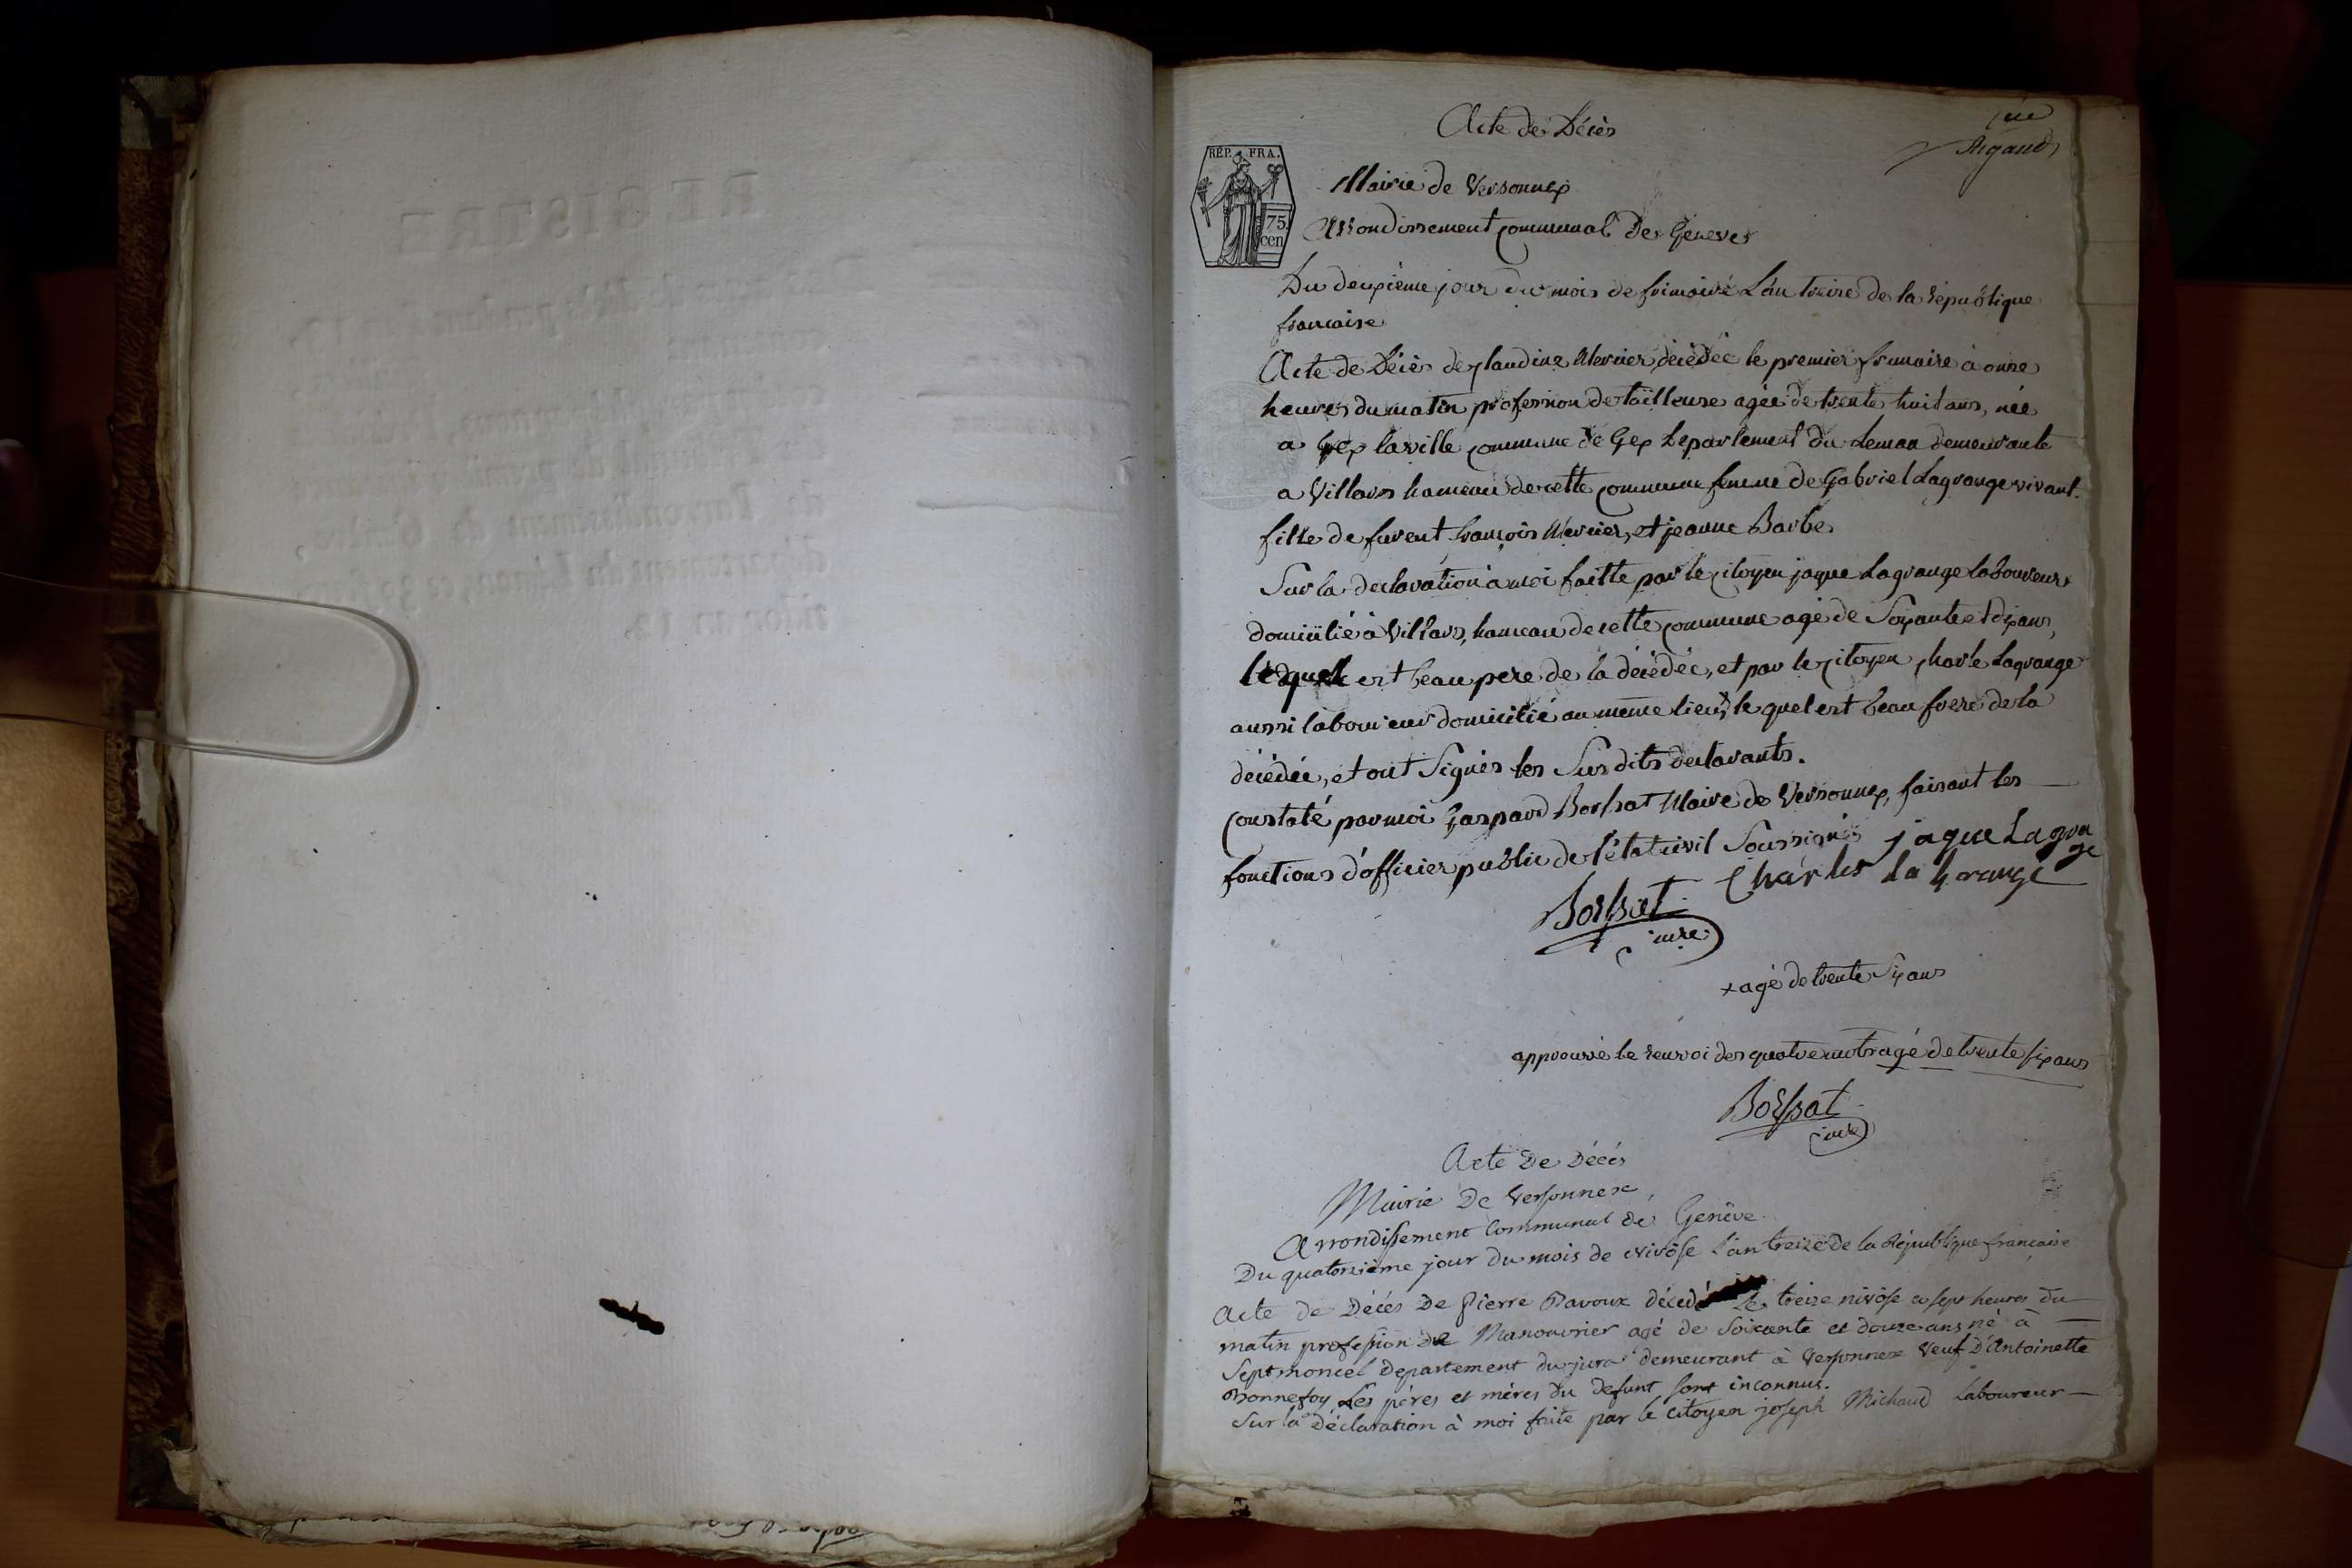 Acte de Décès
Argand
RÉP. FRA.
75
cen
Mairie de Versonnex
Arrondissement communal De Geneve
Du deuxième jour du mois de frimaire L'an treize de la République
francaise
Acte de Décès de Claudine Mercier, décédée le premier frimaire à onze
heures du matin profession de tailleuse agée de trente huit ans, née
a Gex la ville commune de Gex Departement du Leman demeurante
a Villars hameau de cette commune femme de Gabriel Lagrange vivant.
fille de furent francois Mercier, et jeanne Barbe
Sur la declaration a moi faitte par le citoyen jaque Lagrange laboureur
domicilié à Villars, hameau de cette commune agé de Soixante et dix ans,
lequel est beau pere de la décédée, et par le citoyen charle Lagrange
aussi laboureur domicilié au même lieu x le quel est beau frere de la
décédée, et ont Signés les Sus dits declarants.
Constaté par moi Gaspard Borssat Maire de Versonnex, faisant les
fonctions d'officier public de l'état civil Soussignés jaque Lagrange
Charles La Grange
Borssat
maire
x agé de trente Six ans
approuvé le renvoi des quatre mots agé de trente six ans
Borssat
maire
Acte De Décés
Mairie De Versonnex
Arrondissement Communal de Genève
Du quatorzième jour du mois de nivôse L'an treize de la République francaise
Acte de Décés De Pierre Pavoux décedé Le treize nivôse a sept heures du
matin profession De Manouvrier agé de Soixante et douze ans né à
Septmoncel Departement du jura demeurant à Versonnex Veuf D'Antoinette
Bonnefoy Les pères et mères du defunt sont inconnus.
Sur la Déclaration à moi faite par le citoyen joseph Michaud Laboureur